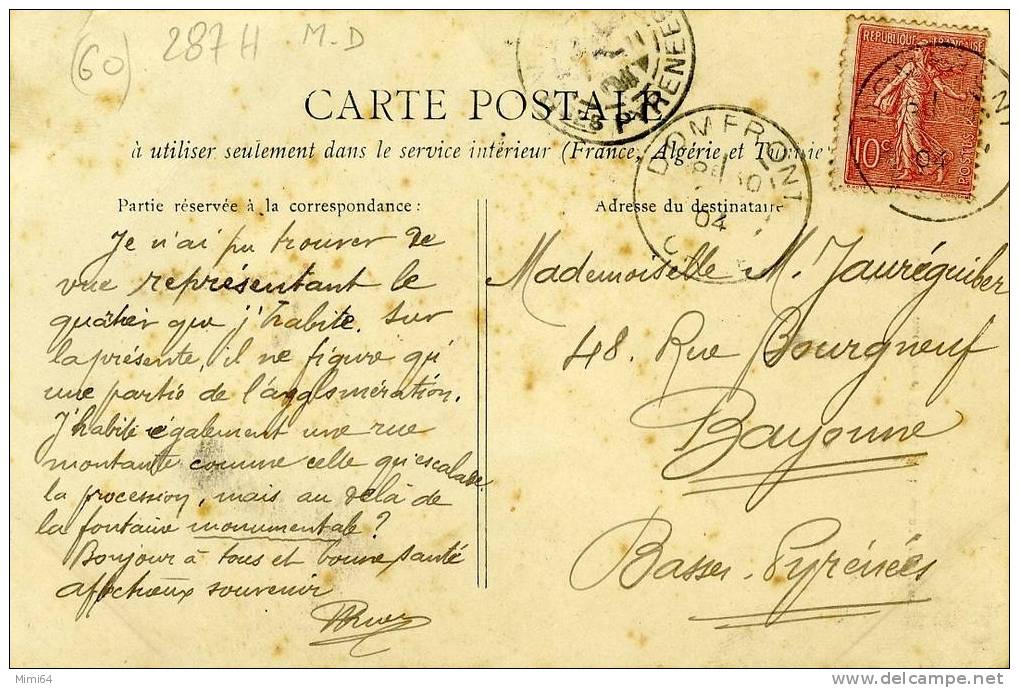 (60) 287 H M-D
CARTE POSTALE
à utiliser seulement dans le service intérieur (France, Algérie et Tunisie
Partie réservée à la correspondance :
Je n'ai pu trouver de
vue représentant le
quartier que j'habite. Sur
la présente, il ne figure qu'
une partie de l'agglomération.
J'habite également une rue
montante comme celle qu'escalade
la procession, mais au delà de
la fontaine monumentale ?
Bonjour à tous et bonne santé
affectueux souvenir
Adresse du destinataire
Mademoiselle M. Jauréguiber
48. Rue Bourgneuf
Bayonne
Basses-Pyrénées
PYRENEES
DOMFRONT
04
REPUBLIQUE FRANÇAISE
10 c
POSTES
04
Mimi64
delcampe.net